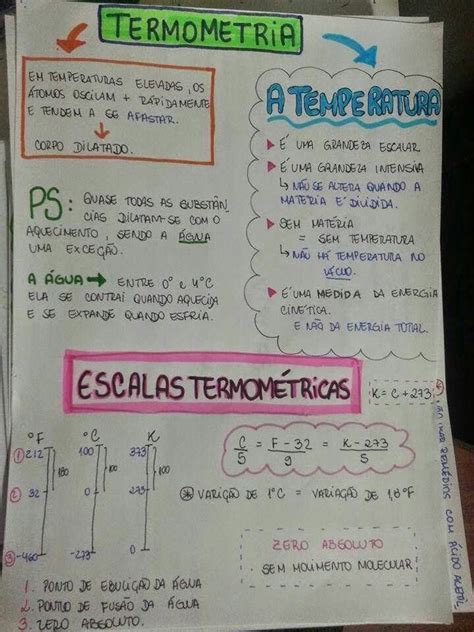 TERMOMETRIA
EM TEMPERATURAS ELEVADAS, OS
ÁTOMOS OSCILAM + RÁPIDAMENTE
E TENDEM A SE AFASTAR.
CORPO DILATADO.
PS: QUASE TODAS AS SUBSTÂN
CIAS DILATAM-SE COM O
AQUECIMENTO, SENDO A ÁGUA
UMA EXCEÇÃO.
A ÁGUA → ENTRE 0° e 4°C
ELA SE CONTRAI QUANDO AQUECIDA
E SE EXPANDE QUANDO ESFRIA.
A TEMPERATURA
É UMA GRANDEZA ESCALAR
É UMA GRANDEZA INTENSIVA
↳ NÃO SE ALTERA QUANDO A
MATERIA É DIVIDIDA.
SEM MATÉRIA
= SEM TEMPERATURA
↳ NÃO HÁ TEMPERATURA NO
VÁCUO.
É UMA MEDIDA DA ENERGIA
CINÉTICA.
E NÃO DA ENERGIA TOTAL.
ESCALAS TERMOMÉTRICAS
K = C + 273
°F °C K
1 212 100 373
180 100 100
2 32 0 273
3 -460 -273 0
C/5 = F - 32/9 = K - 273/5
* VARIÇÃO DE 1°C = VARIAÇÃO DE 1,8°F
ZERO ABSOLUTO
SEM MOLIMENTO MOLECULAR
1. PONTO DE EBULIÇÃO DA ÁGUA
2. PONTO DE FUSÃO DA ÁGUA
3. ZERO ABSOLUTO.
REMÉDIOS COM ÁCIDO ACETIL